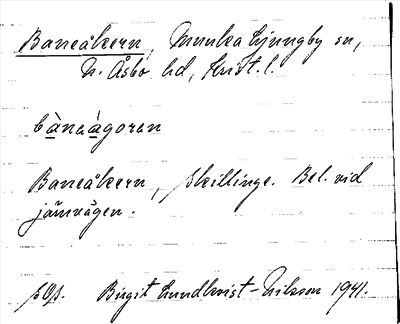 Baneåkern, Munka Ljungby sn,
N. Åsbo hd, Krist. l.
bànaágoren
Baneåkern, skillinge. Bel. vid
järnvägen.
Birgit Lundkvist-Nilsson 1941.